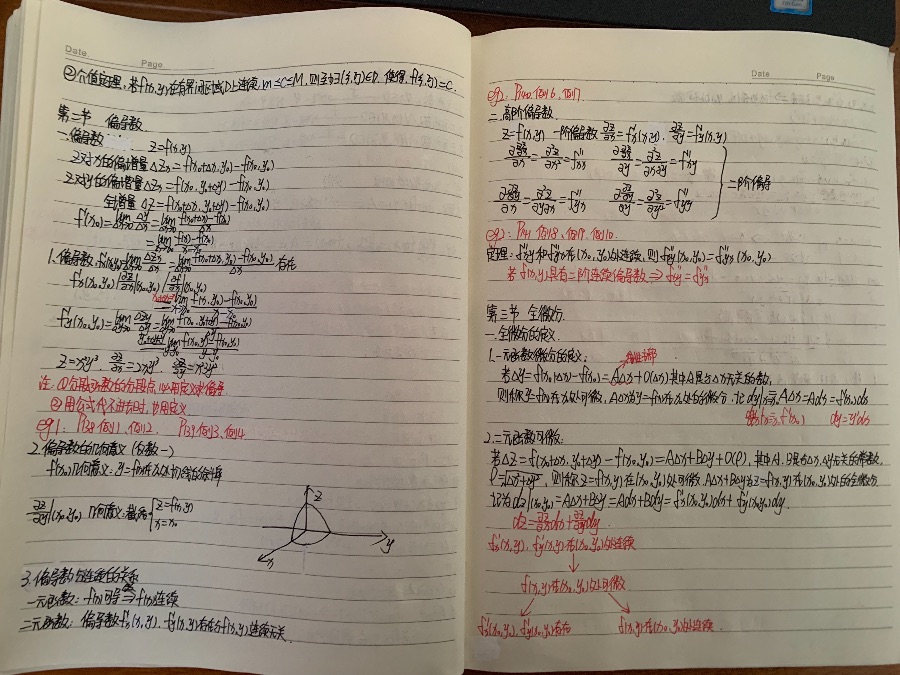 Date Page
②介值定理,若f(x,y)在有界闭区域D上连续,m≤C≤M,则至少∃(ξ,η)∈D,使得f(ξ,η)=C.
第二节 偏导数
一.偏导数 z=f(x,y)
z对x的偏增量Δzₓ=f(x₀+Δx,y₀)-f(x₀,y₀)
z对y的偏增量Δzᵧ=f(x₀,y₀+Δy)-f(x₀,y₀)
全增量 Δz=f(x₀+Δx,y₀+Δy)-f(x₀,y₀)
f'(x₀)=lim Δx→0 Δy/Δx=lim Δx→0 (f(x₀+Δx)-f(x₀))/Δx
=lim x→x₀ (f(x)-f(x₀))/(x-x₀)
1.偏导数,f'ₓ(x₀,y₀)=lim Δx→0 Δzₓ/Δx=lim Δx→0 (f(x₀+Δx,y₀)-f(x₀,y₀))/Δx 存在
f'ₓ(x₀,y₀) ∂z/∂x|(x₀,y₀) ∂f/∂x|(x₀,y₀)
lim x→x₀ (f(x,y₀)-f(x₀,y₀))/(x-x₀)
f'ᵧ(x₀,y₀)=lim Δy→0 Δzᵧ/Δy=lim Δy→0 (f(x₀,y₀+Δy)-f(x₀,y₀))/Δy
lim y→y₀ (f(x₀,y)-f(x₀,y₀))/(y-y₀)
z=x²y³ ∂z/∂x=2xy³ ∂z/∂y=x²3y²
注:①分段函数的分段点,必用定义求偏导
②用公式代不进去时,必用定义
eg1: P138例1、例2、 P139例3、例4
2.偏导数的几何意义(仅数一)
f'(x₀)几何意义:y=f(x)在x₀处切线的斜率
∂z/∂y|(x₀,y₀) 几何意义:截痕{z=f(x,y)
x=x₀
z
y
x
3.偏导数与连续的关系
一元函数: f(x)可导⇒f(x)连续
二元函数: 偏导数f'ₓ(x,y)、f'ᵧ(x,y)存在与f(x,y)连续无关
Date Page
eg2: P140例6、例7.
二.高阶偏导数
z=f(x,y) 一阶偏导数 ∂z/∂x=f'ₓ(x,y), ∂z/∂y=f'ᵧ(x,y)
∂(∂z/∂x)/∂x=∂²z/∂x²=f''ₓₓ ∂(∂z/∂x)/∂y=∂²z/∂x∂y=f''ₓᵧ
二阶偏导
∂(∂z/∂y)/∂x=∂²z/∂y∂x=f''ᵧₓ ∂(∂z/∂y)/∂y=∂²z/∂y²=f''ᵧᵧ
eg3: P141例8、例9、例10.
定理:f''ₓᵧ和f''ᵧₓ在(x₀,y₀)处连续,则f''ₓᵧ(x₀,y₀)=f''ᵧₓ(x₀,y₀)
若f(x,y)具有二阶连续偏导数⇒f''ₓᵧ=f''ᵧₓ
第三节 全微分
一.全微分的定义
1.一元函数微分的定义: 线性主部
若Δy=f(x₀+Δx)-f(x₀)=AΔx+o(Δx)其中A是与Δx无关的常数,
则称y=f(x)在x₀处可微,AΔx为y=f(x)在x₀处的微分,记dy|x=x₀=AΔx=Adx=f'(x₀)dx
dy/dx|x=x₀=f'(x₀) dy=y'dx
2.二元函数可微:
若Δz=f(x₀+Δx,y₀+Δy)-f(x₀,y₀)=AΔx+BΔy+o(ρ),其中A,B是与Δx,Δy无关的常数,
ρ=√(Δx²+Δy²),则称z=f(x,y)在(x₀,y₀)处可微,AΔx+BΔy为z=f(x,y)在(x₀,y₀)处的全微分
记为dz|(x₀,y₀)=AΔx+BΔy=Adx+Bdy=f'ₓ(x₀,y₀)dx+f'ᵧ(x₀,y₀)dy
dz=∂z/∂x dx+∂z/∂y dy
f'ₓ(x,y),f'ᵧ(x,y)在(x₀,y₀)处连续
↓
f(x,y)在(x₀,y₀)处可微
f'ₓ(x₀,y₀),f'ᵧ(x₀,y₀)存在 f(x,y)在(x₀,y₀)处连续